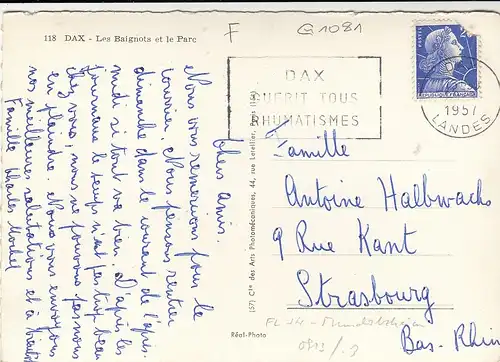 118 DAX - Les Baignots et le Parc
F
G1081
DAX
GUÉRIT TOUS
RHUMATISMES
1957
LANDES
Chers amis.
Nous vous remercions pour le
courrier. Nous pensons rentrer
dimanche dans le courant de l'après
midi si tout va bien. D'après les
journaux le temps n'est pas trop beau
chez vous, nous ne pouvons pas nous
en plaindre. Nous vous envoyons
nos meilleures salutations et à
Famille Charles
(57) Cie des Arts Photomécaniques, 44, rue Letellier,
Réal-Photo
Famille
Antoine Halbwachs
9 Rue Kant
Strasbourg
Bas-Rhin